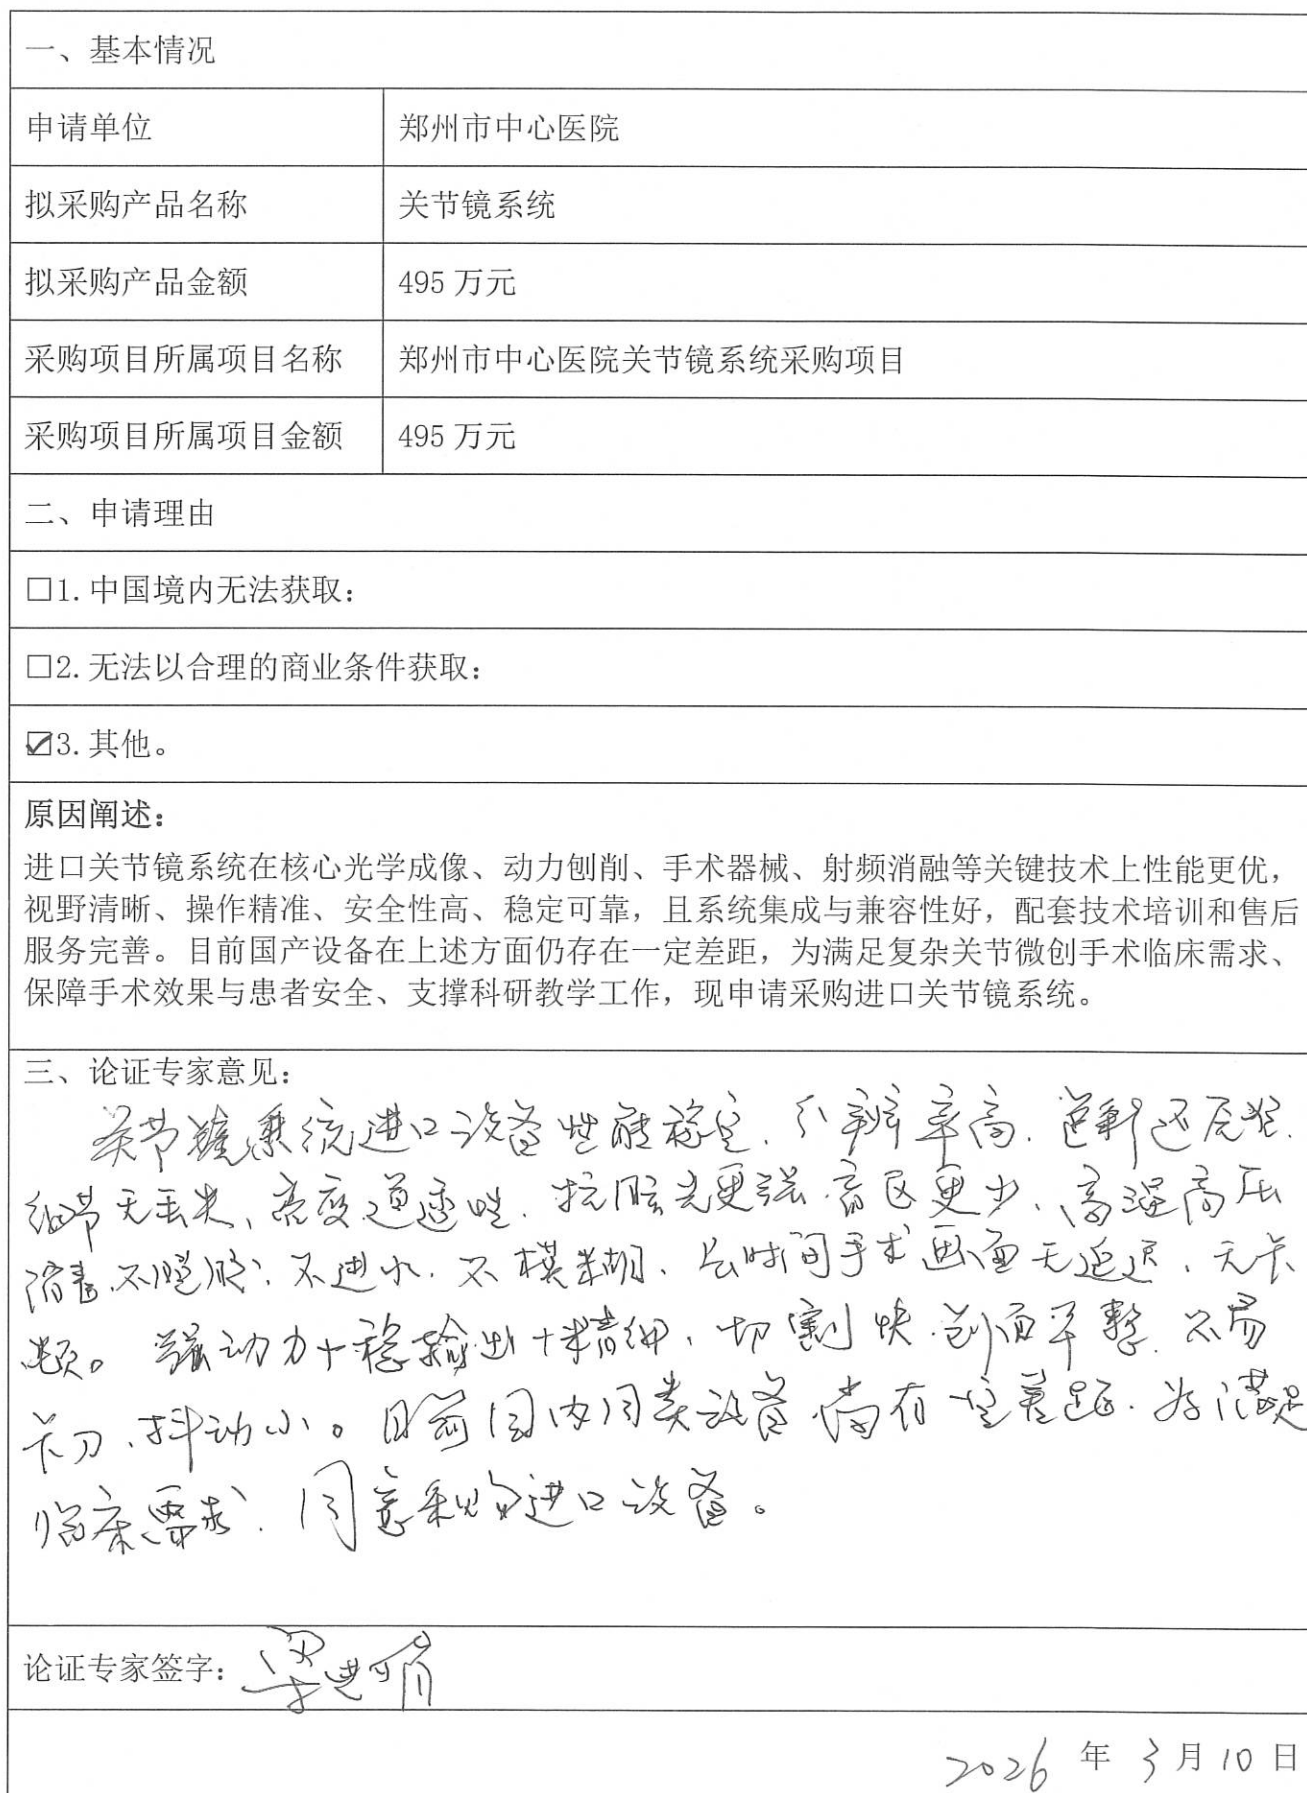 一、基本情况
申请单位 郑州市中心医院
拟采购产品名称 关节镜系统
拟采购产品金额 495万元
采购项目所属项目名称 郑州市中心医院关节镜系统采购项目
采购项目所属项目金额 495万元
二、申请理由
□1.中国境内无法获取：
□2.无法以合理的商业条件获取：
☑3.其他。
原因阐述：
进口关节镜系统在核心光学成像、动力刨削、手术器械、射频消融等关键技术上性能更优，
视野清晰、操作精准、安全性高、稳定可靠，且系统集成与兼容性好，配套技术培训和售后
服务完善。目前国产设备在上述方面仍存在一定差距，为满足复杂关节微创手术临床需求、
保障手术效果与患者安全、支撑科研教学工作，现申请采购进口关节镜系统。
三、论证专家意见：
关节镜系统进口设备性能稳定、分辨率高、色彩还原
细节无丢失、亮度通透性、抗眩光更强、盲区更少、高温高压
消毒、不进水、不模糊、长时间手术画面无延迟、无卡
顿。强动力+稳输出+精细、切割快、创面平整、不易
卡刀、抖动小。目前国内同类设备尚有一定差距、为满足
临床需求、同意采购进口设备。
论证专家签字：
2026年3月10日